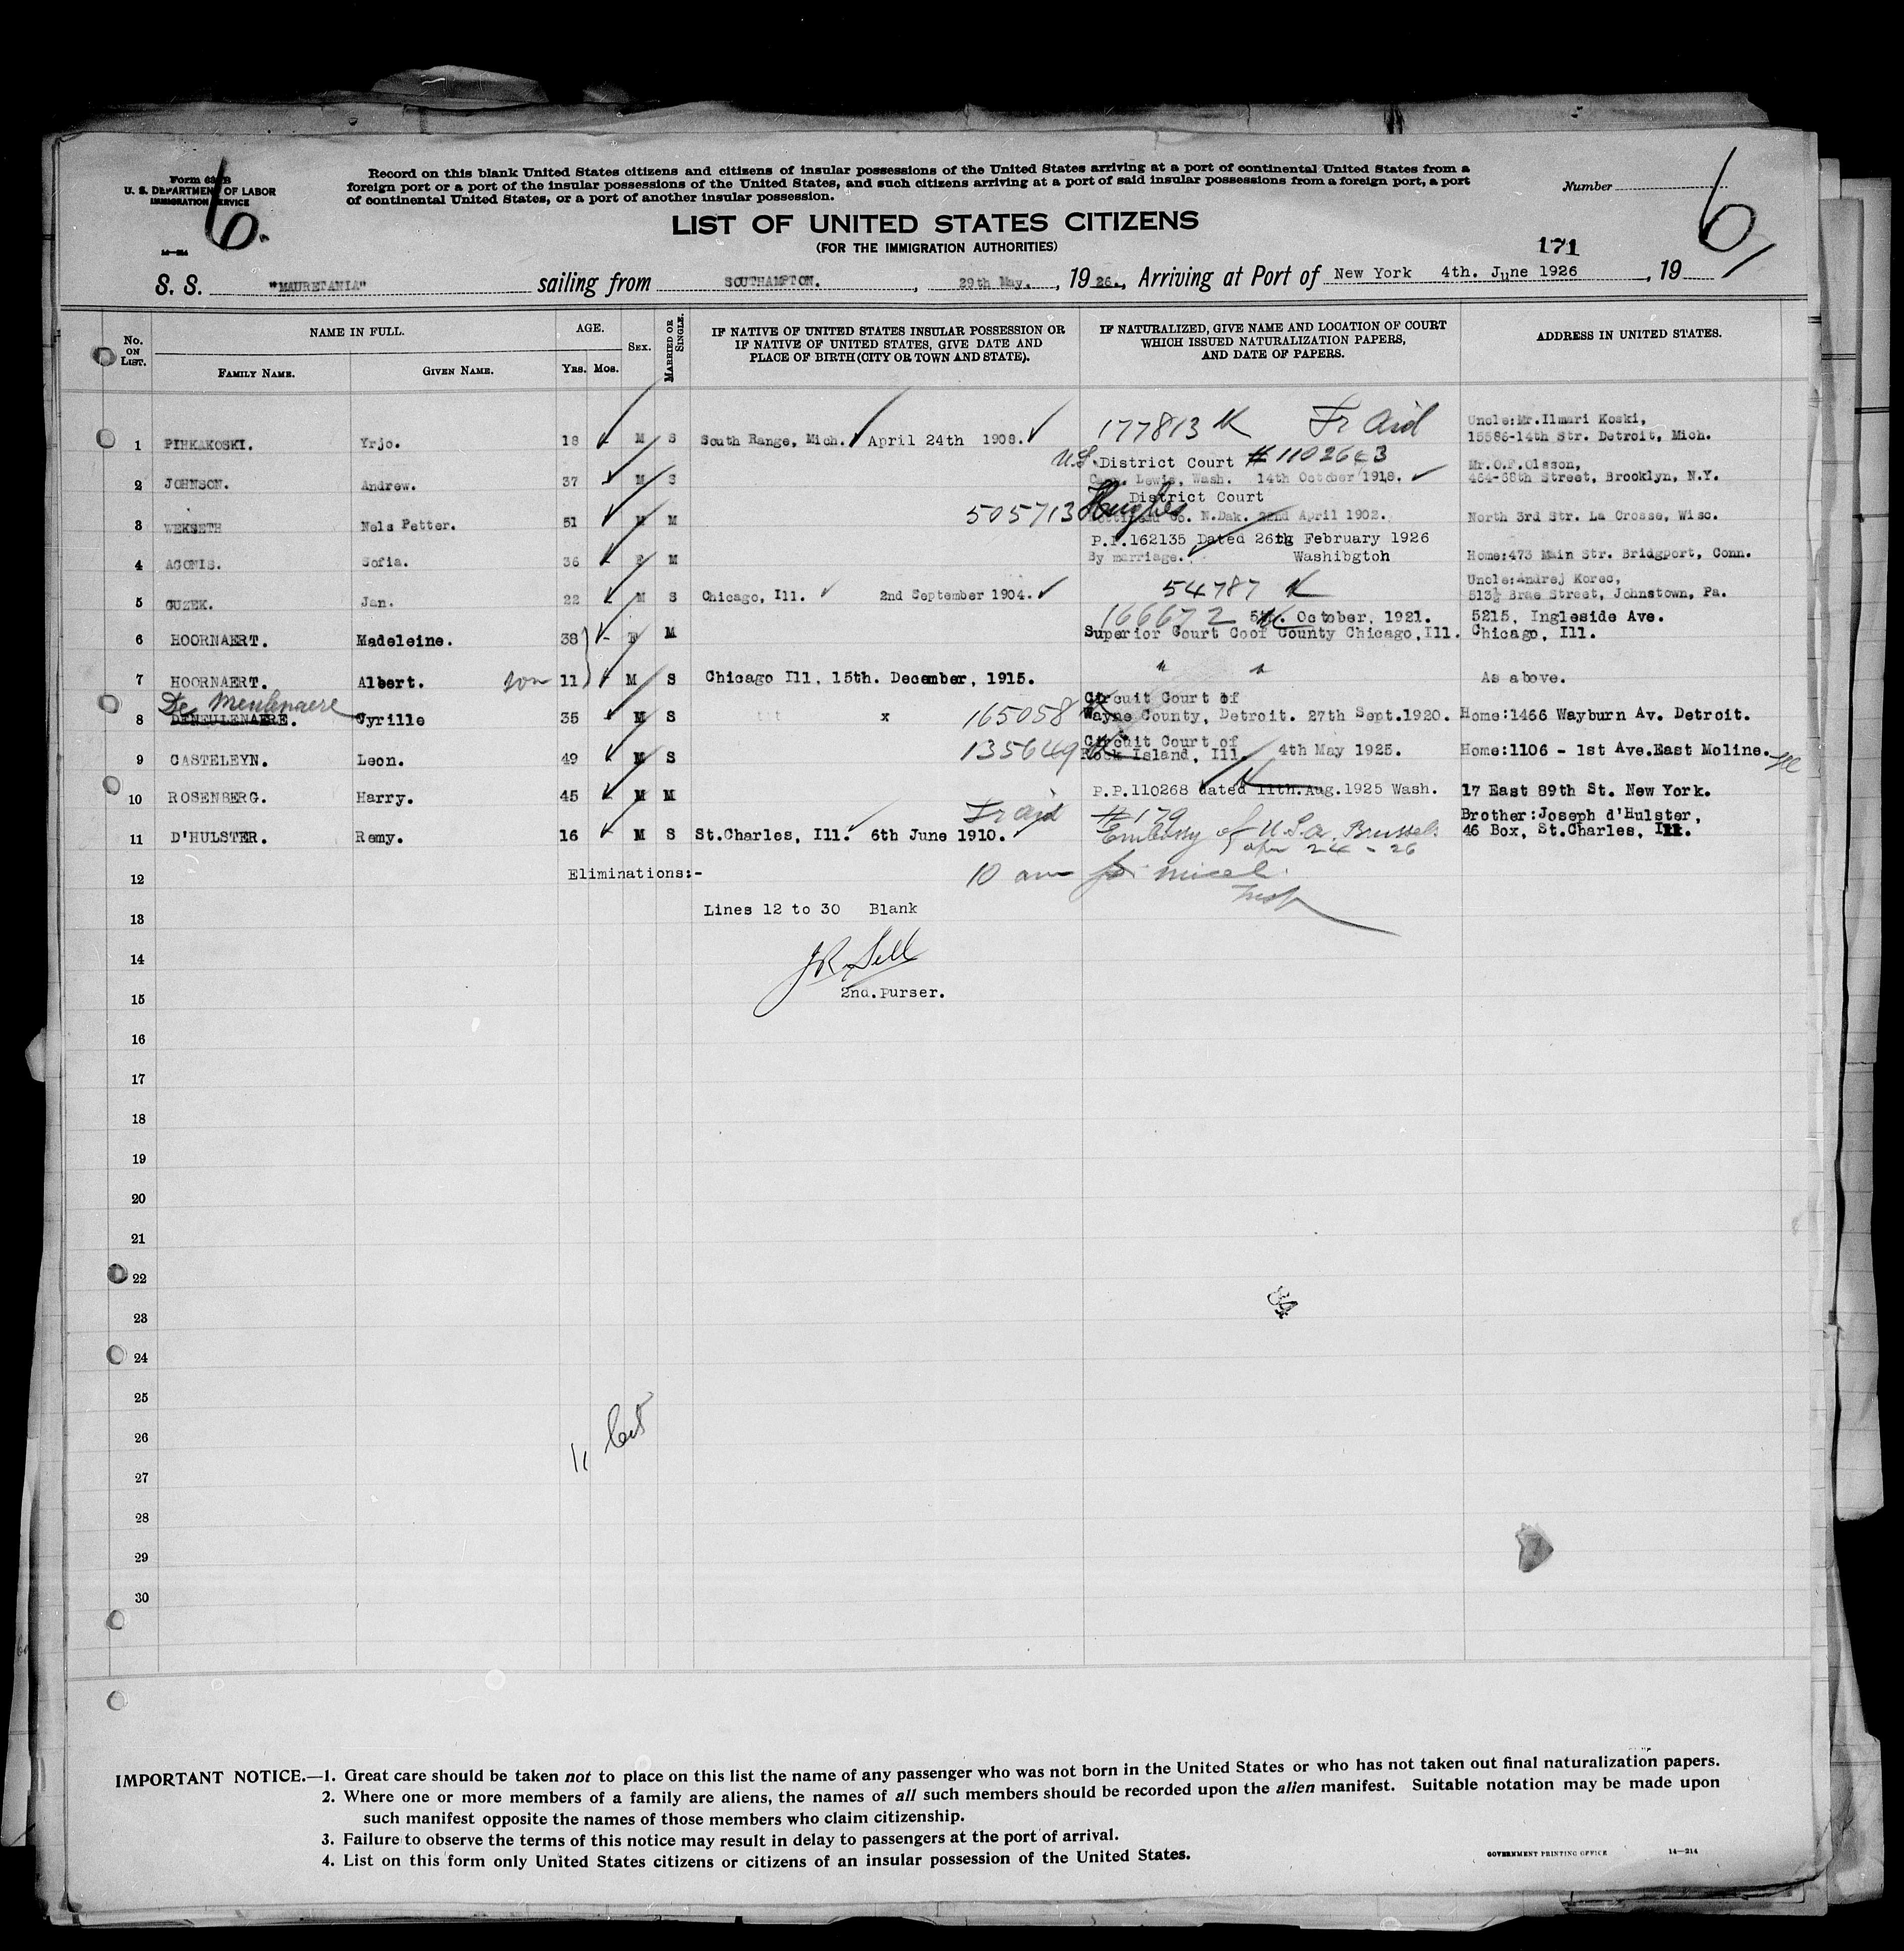 Form 630 B
U. S. DEPARTMENT OF LABOR
IMMIGRATION SERVICE
14—214
6.
Record on this blank United States citizens and citizens of insular possessions of the United States arriving at a port of continental United States from a
foreign port or a port of the insular possessions of the United States, and such citizens arriving at a port of said insular possessions from a foreign port, a port
of continental United States, or a port of another insular possession.
Number
6
LIST OF UNITED STATES CITIZENS
(FOR THE IMMIGRATION AUTHORITIES)
171
S. S. "MAURETANIA" sailing from SOUTHAMPTON. , 29th May. , 19 26. , Arriving at Port of New York 4th. June 1926 , 19
No. ON LIST.
NAME IN FULL.
FAMILY NAME.
GIVEN NAME.
AGE.
YRS. MOS.
SEX.
MARRIED OR SINGLE.
IF NATIVE OF UNITED STATES INSULAR POSSESSION OR
IF NATIVE OF UNITED STATES, GIVE DATE AND
PLACE OF BIRTH (CITY OR TOWN AND STATE).
IF NATURALIZED, GIVE NAME AND LOCATION OF COURT
WHICH ISSUED NATURALIZATION PAPERS,
AND DATE OF PAPERS.
ADDRESS IN UNITED STATES.
177813 Fr Aid
Uncle:Mr.Ilmari Koski,
1 PIHKAKOSKI. Yrjo. 18 M S South Range, Mich. April 24th 1908. 15586-14th Str. Detroit, Mich.
U.S. District Court # 1102643
Mr.O.F.Olsson,
2 JOHNSON. Andrew. 37 M S Camp. Lewis, Wash. 14th October 1918. 464-68th Street, Brooklyn, N.Y.
District Court
3 WEKSETH Nels Petter. 51 M M 505713 Hughes Co. N.Dak. 22nd April 1902. North 3rd Str. La Crosse, Wisc.
P.P.162135 Dated 26th February 1926
4 AGONIS. Sofia. 36 F M By marriage. Washibgton Home:473 Main Str. Bridgport, Conn.
54787
Uncle:Andrej Korec,
5 GUZEK. Jan. 22 M S Chicago, Ill. 2nd September 1904. 513½ Brae Street, Johnstown, Pa.
166672 5th. October, 1921. 5215, Ingleside Ave.
6 HOORNAERT. Madeleine. 38 F M Superior Court Coof County Chicago,Ill. Chicago, Ill.
7 HOORNAERT. Albert. son 11 M S Chicago Ill, 15th. December, 1915. " " As above.
De Meulenaere
Circuit Court of
8 DEMEULENAERE. Cyrille 35 M S x 165058 Wayne County, Detroit. 27th Sept.1920. Home:1466 Wayburn Av. Detroit.
Circuit Court of
9 CASTELEYN. Leon. 49 M S 135649 Rock Island, Ill. 4th May 1925. Home:1106 - 1st Ave.East Moline. Ill
10 ROSENBERG. Harry. 45 M M P.P.110268 dated 11th.Aug.1925 Wash. 17 East 89th St. New York.
Fr Aid # 179
Brother:Joseph d'Hulster,
11 D'HULSTER. Remy. 16 M S St.Charles, Ill. 6th June 1910. Embassy of U.S.A. Brussels 46 Box, St.Charles, Ill.
Apr 24 - 26
12 Eliminations:- 10 am
13 Lines 12 to 30 Blank
14 JR Sell
15 2nd.Purser.
16
17
18
19
20
21
22
23
84
24
25
26
11
27
28
29
30
IMPORTANT NOTICE.—1. Great care should be taken not to place on this list the name of any passenger who was not born in the United States or who has not taken out final naturalization papers.
2. Where one or more members of a family are aliens, the names of all such members should be recorded upon the alien manifest. Suitable notation may be made upon
such manifest opposite the names of those members who claim citizenship.
3. Failure to observe the terms of this notice may result in delay to passengers at the port of arrival.
4. List on this form only United States citizens or citizens of an insular possession of the United States.
GOVERNMENT PRINTING OFFICE 14—214